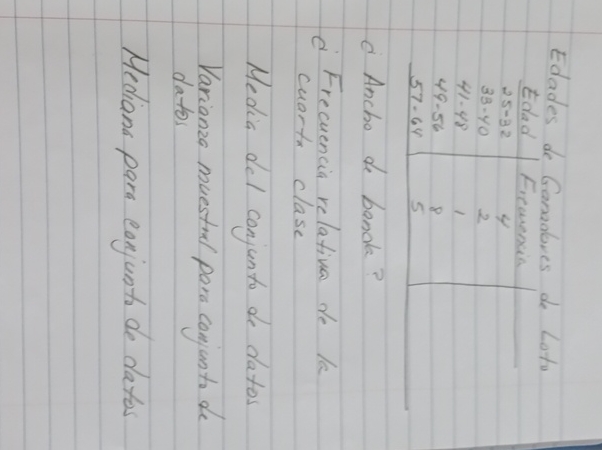 Edades de Ganadores de Loto
Edad Frecuencia
25-32 4
33-40 2
41-48 1
49-56 8
57-64 5
¿ Ancho de banda?
¿ Frecuencia relativa de la
cuarta clase
Media del conjunto de datos
Varianza muestral para conjunto de
datos
Mediana para conjunto de datos